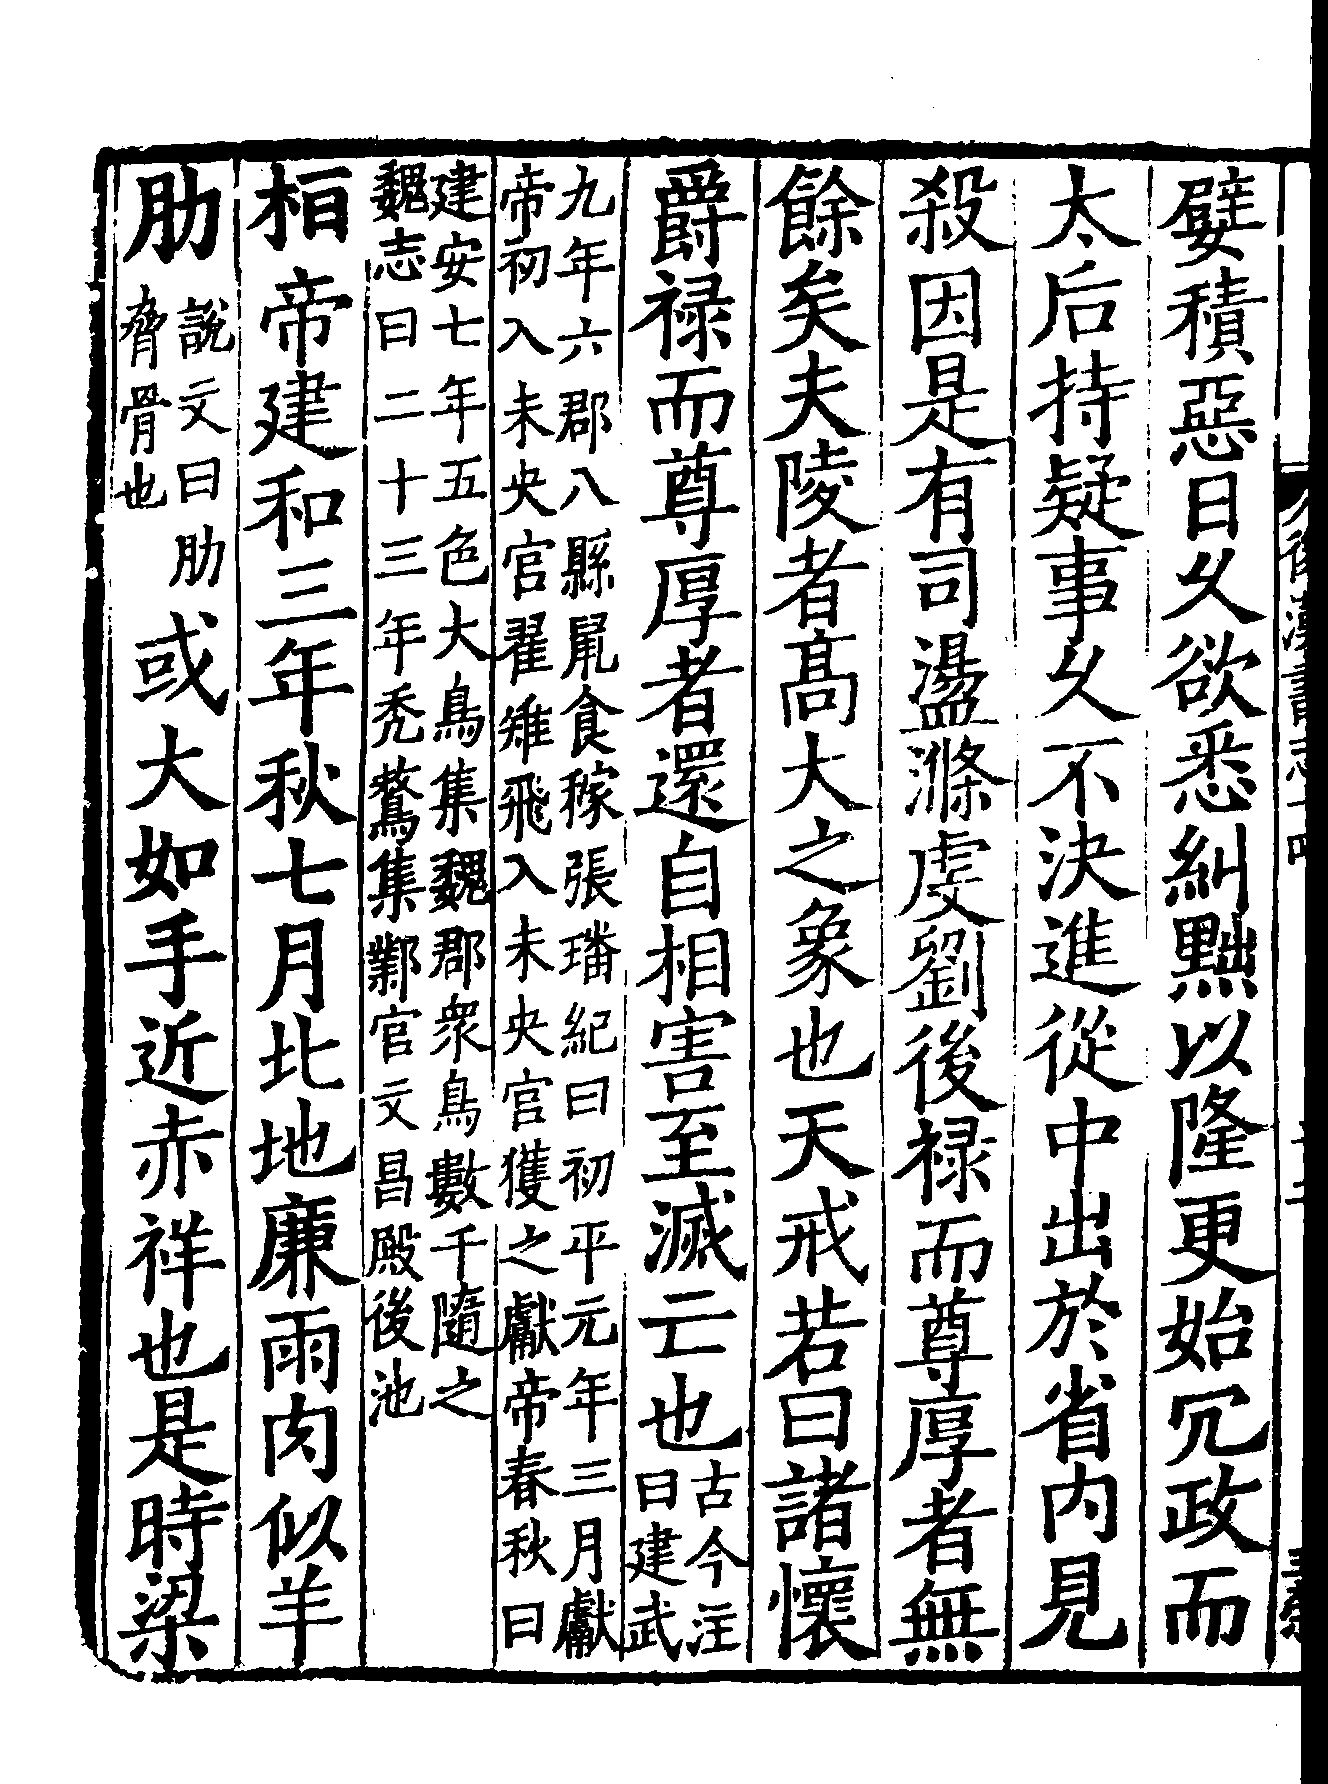 嬖積惡日久欲悉糾黜以隆更始冗政而
太后持疑事久不決進從中出於省内見
殺因是有司盪滌虔劉後禄而尊厚者無
餘矣夫陵者髙大之象也天戒若曰諸懷
爵禄而尊厚者還自相害至滅亡也
古今注
曰建武
九年六郡八縣鼠食稼張璠紀曰初平元年三月獻
帝初入未央宫翟雉飛入未央宫獲之獻帝春秋曰
建安七年五色大鳥集魏郡衆鳥數千隨之
魏志曰二十三年秃鶖集鄴宫文昌殿後池
桓帝建和三年秋七月北地廉雨肉似羊
肋
說文曰肋
脅骨也
或大如手近赤祥也是時梁